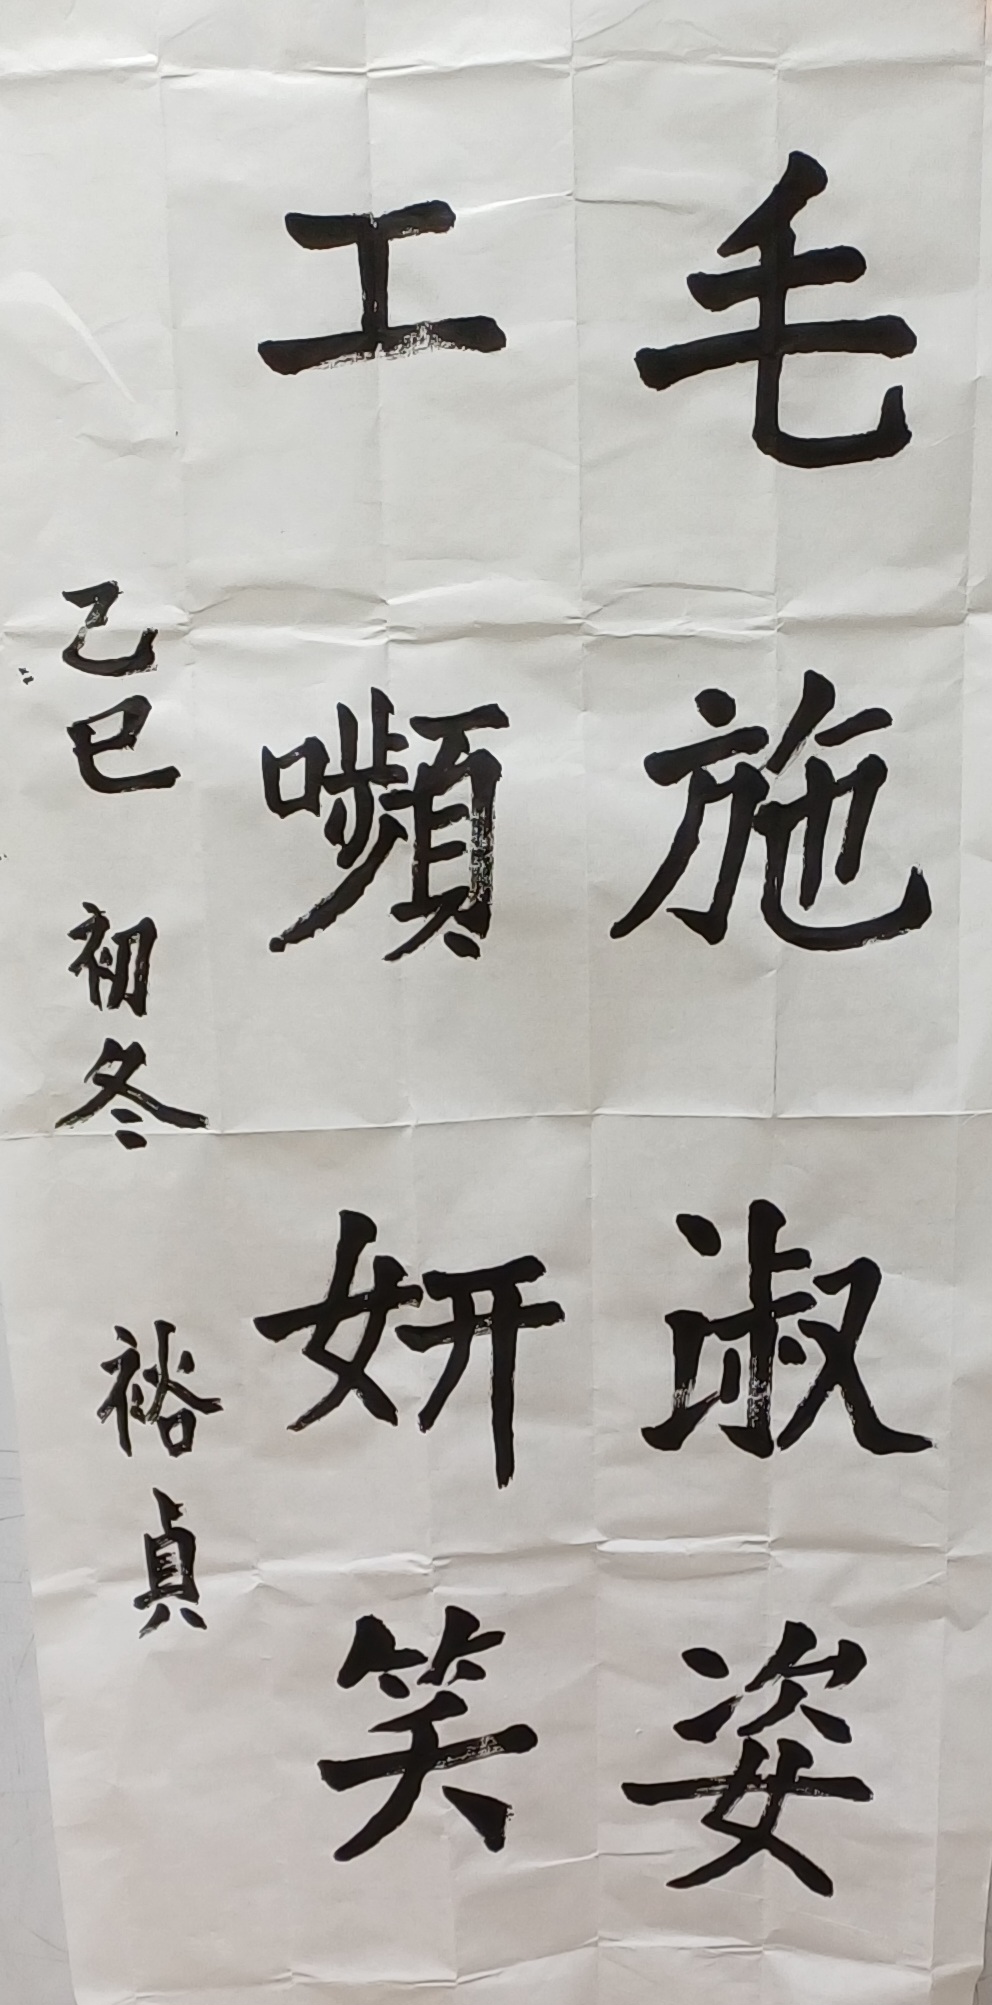 毛施淑姿
工嚬妍笑
己巳初冬 裕貞